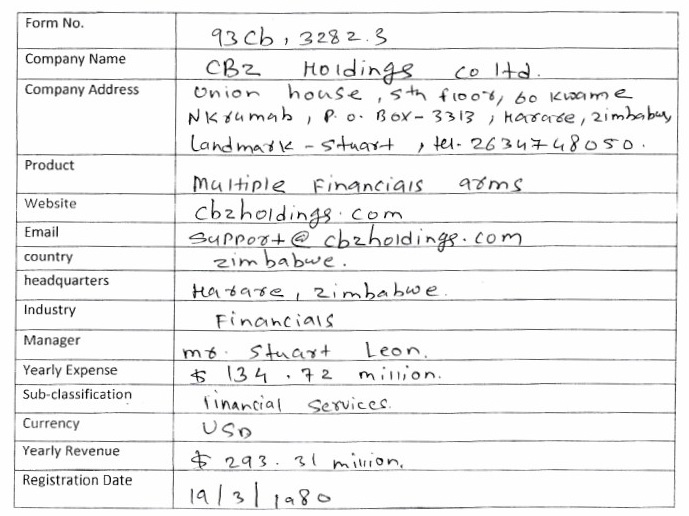 Form No. 93Cb, 3282.3
Company Name CBZ Holdings co ltd.
Company Address Union house, 5th floor, 60 Kwame
Nkrumah, P.O. Box-3313, Harare, zimbabwe,
Landmark - Stuart, tel. 2634748050.
Product Multiple Financials arms
Website cbzholdings.com
Email support@cbzholdings.com
country zimbabwe.
headquarters Harare, zimbabwe.
Industry Financials
Manager mr. Stuart Leon.
Yearly Expense $ 134.72 million.
Sub-classification financial services.
Currency USD
Yearly Revenue $ 293.31 million.
Registration Date 19/3/1980